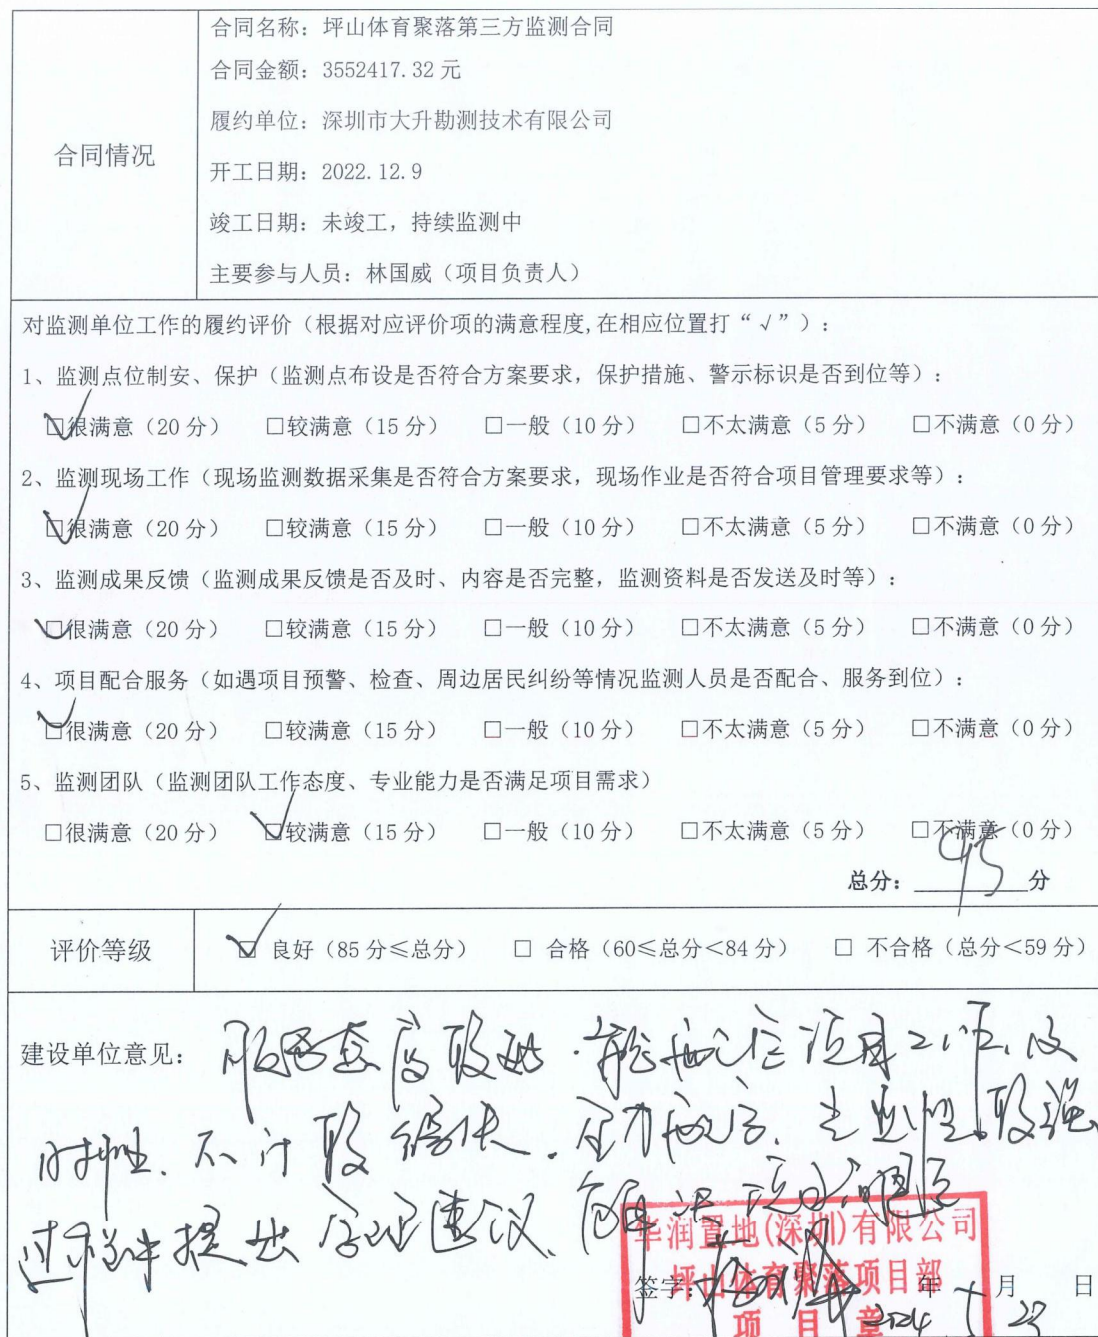 合同情况
合同名称：坪山体育聚落第三方监测合同
合同金额：3552417.32 元
履约单位：深圳市大升勘测技术有限公司
开工日期：2022.12.9
竣工日期：未竣工，持续监测中
主要参与人员：林国威（项目负责人）
对监测单位工作的履约评价（根据对应评价项的满意程度,在相应位置打“√”）：
1、监测点位制安、保护（监测点布设是否符合方案要求，保护措施、警示标识是否到位等）：
☑很满意（20 分） □较满意（15 分） □一般（10 分） □不太满意（5 分） □不满意（0 分）
2、监测现场工作（现场监测数据采集是否符合方案要求，现场作业是否符合项目管理要求等）：
☑很满意（20 分） □较满意（15 分） □一般（10 分） □不太满意（5 分） □不满意（0 分）
3、监测成果反馈（监测成果反馈是否及时、内容是否完整，监测资料是否发送及时等）：
☑很满意（20 分） □较满意（15 分） □一般（10 分） □不太满意（5 分） □不满意（0 分）
4、项目配合服务（如遇项目预警、检查、周边居民纠纷等情况监测人员是否配合、服务到位）：
☑很满意（20 分） □较满意（15 分） □一般（10 分） □不太满意（5 分） □不满意（0 分）
5、监测团队（监测团队工作态度、专业能力是否满足项目需求）
□很满意（20 分） ☑较满意（15 分） □一般（10 分） □不太满意（5 分） □不满意（0 分）
总分：95分
评价等级
☑ 良好（85 分≤总分） □ 合格（60≤总分<84 分） □ 不合格（总分<59 分）
建设单位意见：服务态度较好 配合项目工作、及
时性、不计较得失、全力配合、专业性较强、
过程中提出合理建议、解决项目
华润置地(深圳)有限公司
坪山体育聚落项目部
项目章
签字： 2024 年 月 23 日